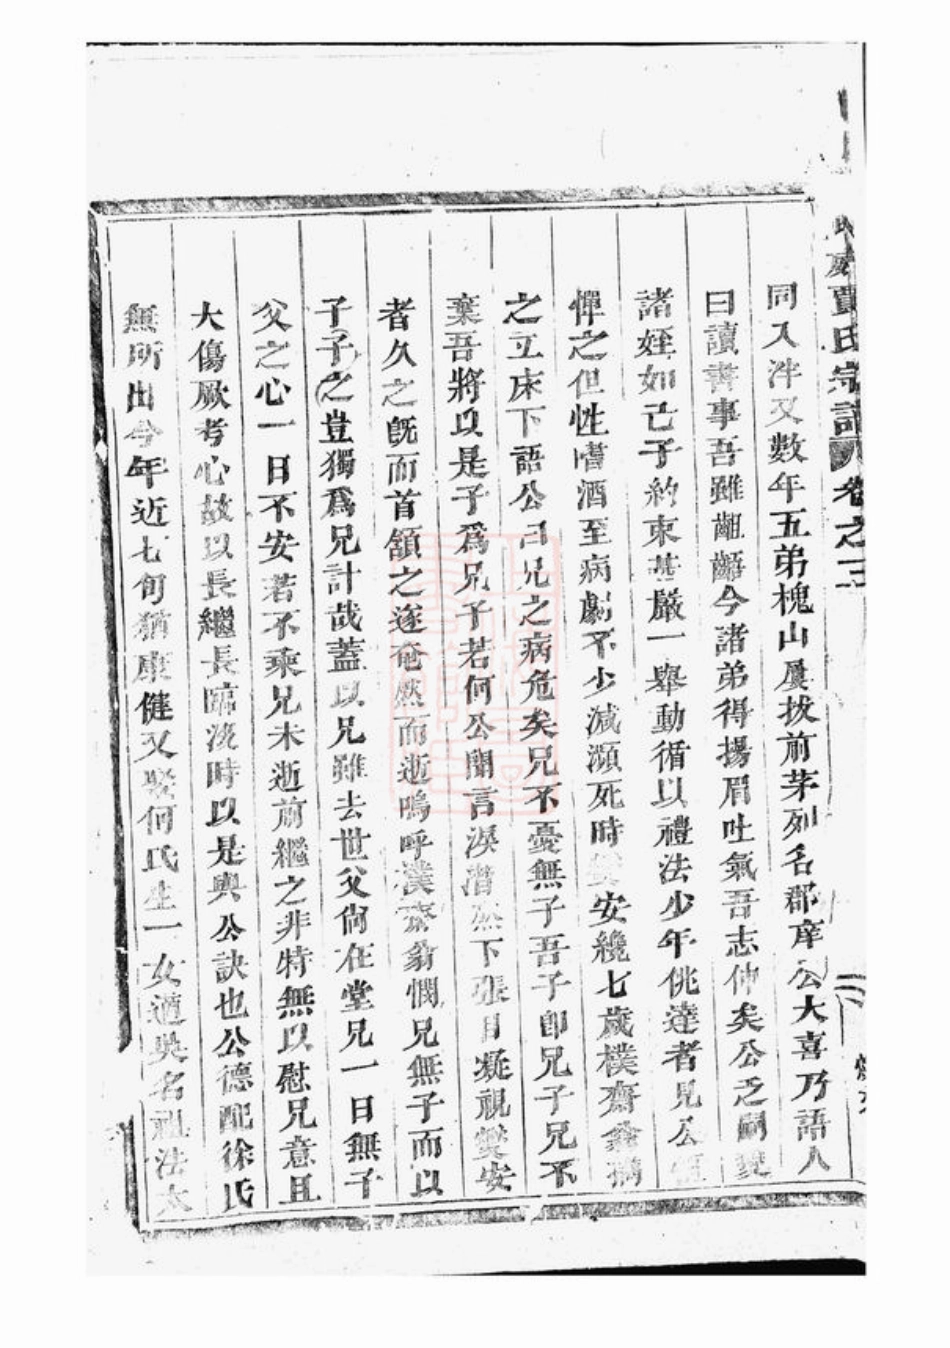 賈氏宗譜 卷之三
同入泮又數年五弟槐山屢拔前茅列名郡庠公大喜乃語人
曰讀書事吾雖齟齬今諸弟得揚眉吐氣吾志伸矣公之嗣
諸姪如己子約束甚嚴一舉動循以禮法少年佻達者見公
憚之但性嗜酒至病劇不少減瀕死時 安纔七歲樸齋翁
之立床下語公曰兄之病危矣兄不憂無子吾子卽兄子兄不
棄吾將以是子爲兄子若何公聞言淚潸然下張目凝視 安
者久之旣而首頷之遂奄然而逝嗚呼樸齋翁憫兄無子而以
子子之豈獨爲兄計哉蓋以兄雖去世父尙在堂兄一日無子
父之心一日不安若不乘兄未逝前繼之非特無以慰兄意且
大傷厥考心故以長繼長臨沒時以是與公訣也公德配徐氏
無所出今年近七旬猶康健又娶何氏生一女適吳名祖法太